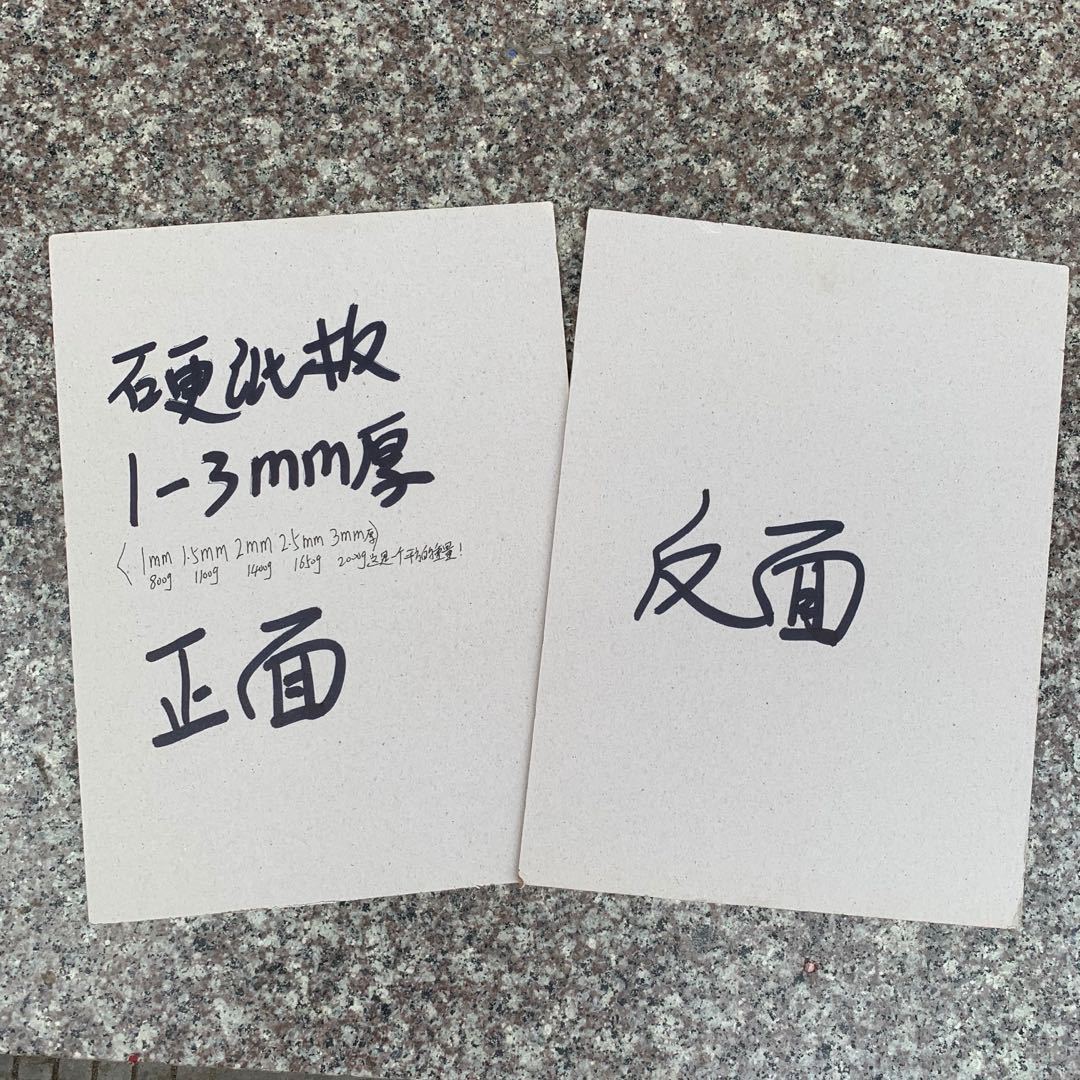 硬纸板
1-3mm厚
(1mm 1.5mm 2mm 2.5mm 3mm厚)
800g 1100g 1400g 1650g 2000g这是一个平方的重量!
正面
反面